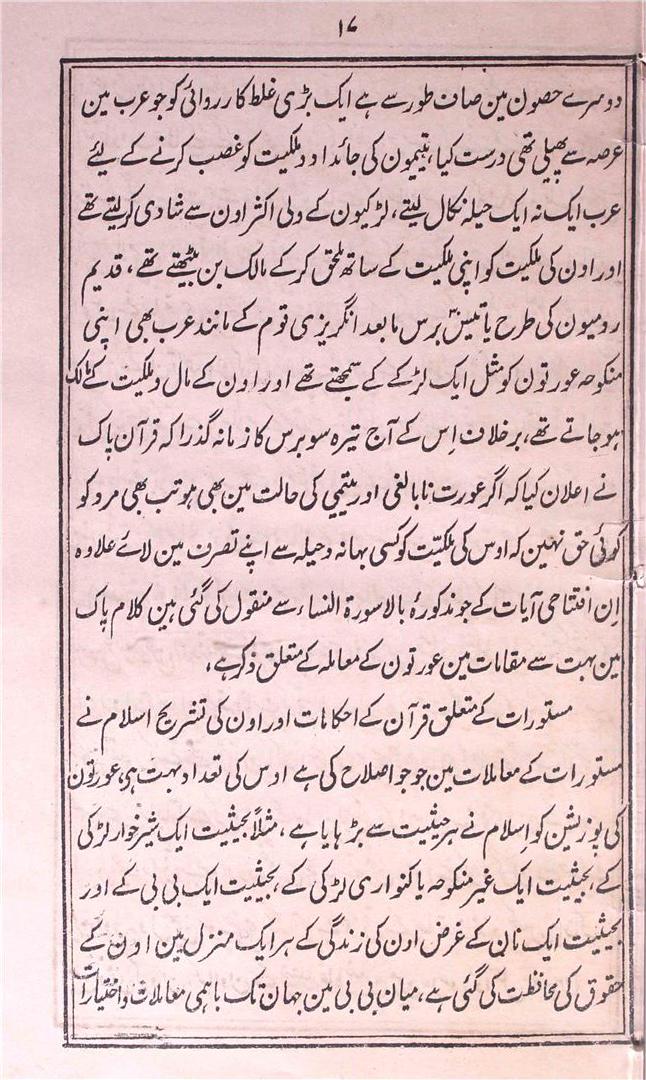 ۱۷
دوسرے حصون مین صاف طور سے ہے ایک بڑی غلط کارروائی کو جو عرب مین
عرصہ سے پھیلی تھی درست کیا، یتیمون کی جائداد و ملکیت کو غصب کرنے کے لیئے
عرب ایک نہ ایک حیلہ نکال لیتے، لڑکیون کے ولی اکثر اون سے شادی کر لیتے تھے
اور اون کی ملکیت کو اپنی ملکیت کے ساتھ ملحق کر کے مالک بن بیٹھتے تھے، قدیم
رومیون کی طرح یا تیس۳۰ برس ما بعد انگریزی قوم کے مانند عرب بھی اپنی
منکوحہ عورتون کو مثل ایک لڑکے کے سمجھتے تھے اور اون کے مال و ملکیت کے مالک
ہو جاتے تھے، بر خلاف اِس کے آج تیرہ سو برس کا زمانہ گذرا کہ قرآن پاک
نے اعلان کیا کہ اگر عورت نابالغی اور یتیمی کی حالت مین بھی ہو تب بھی مرد کو
کوئی حق نہین کہ اوس کی ملکیّت کو کسی بہانہ و حیلہ سے اپنے تصرف مین لائے علاوہ
اِن افتتاحی آیات کے جو مذکورۂ بالا سورۃ النساء سے منقول کی گئی ہین کلام پاک
مین بہت سے مقامات مین عورتون کے معاملہ کے متعلق ذکر ہے،
مستورات کے متعلق قرآن کے احکامات اور اون کی تشریح اسلام نے
مستورات کے معاملات مین جو جو اصلاح کی ہے اوس کی تعداد بہت ہی، عورتون
کی پوزیشن کو اِسلام نے ہر حیثیت سے بڑہایا ہے، مثلاً بحیثیت ایک شیر خوار لڑکی
کے، بحیثیت ایک غیر منکوحہ یا کنواری لڑکی کے، بحیثیت ایک بی بی کے اور
بحیثیت ایک مان کے غرض اون کی زندگی کے ہر ایک منزل مین اون کے
حقوق کی محافظت کی گئی ہے، میان بی بی مین جہان تک باہمی معاملات و اختیارات